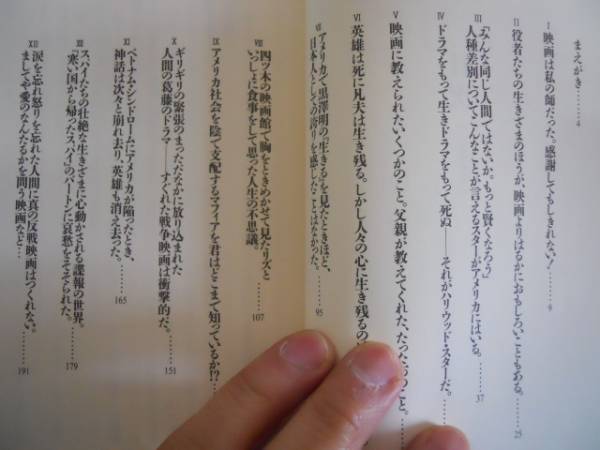 まえがき……4
I 映画は私の師だった。感謝してもしきれない!……9
II 役者たちの生きざまのほうが、映画よりはるかにおもしろいこともある。……25
III 「みんな同じ人間ではないか。もっと賢くなろう」
人種差別についてこんなことが言えるスターがアメリカにはいる。……37
IV ドラマをもって生きドラマをもって死ぬ——それがハリウッド・スターだ。……
V 映画に教えられたいくつかのこと。父親が教えてくれた、たった一つのこと。……
VI 英雄は死に凡夫は生き残る。しかし人々の心に生き残るの
VII アメリカで黒澤明の『生きる』を見たときほど、
日本人としての誇りを感じたことはなかった。……95
VIII 四ツ木の映画館で胸をときめかせて見たリズと
いっしょに食事をして思った人生の不思議。……107
IX アメリカ社会を陰で支配するマフィアを君はどこまで知っているか!?……
X ギリギリの緊張のまっただなかに放り込まれた
人間の葛藤のドラマ——すぐれた戦争映画は衝撃的だ。……151
XI ベトナム・シンドロームにアメリカが陥ったとき、
神話は次々と崩れ去り、英雄も消え去った。……165
XII スパイたちの壮絶な生きざまに心動かされる諜報の世界。
『寒い国から帰ったスパイ』のバートンに哀愁をそそられた。……179
XIII 涙を忘れ怒りを忘れた人間に真の反戦映画はつくれない。
ましてや愛のなんたるかを問う映画など……191